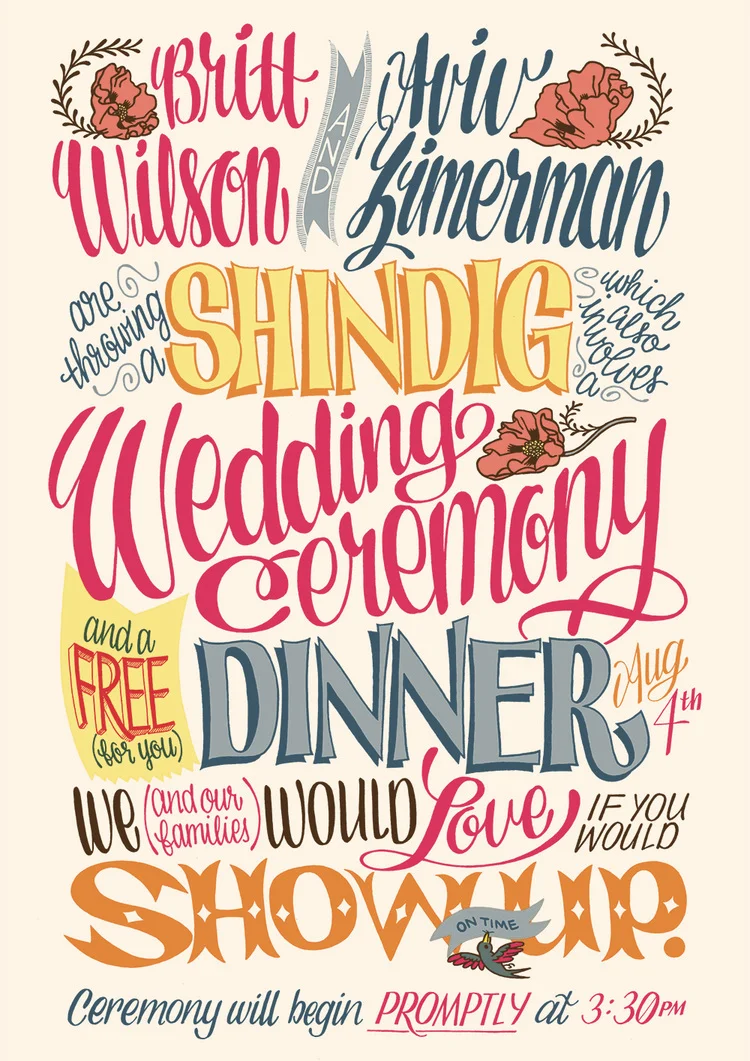 Britt AND Aviv
Wilson Zimerman
are throwing a SHINDIG which also involves a
Wedding
Ceremony
and a FREE (for you) DINNER Aug 4th
WE (and our families) WOULD Love IF YOU WOULD
SHOW UP.
ON TIME
Ceremony will begin PROMPTLY at 3:30PM